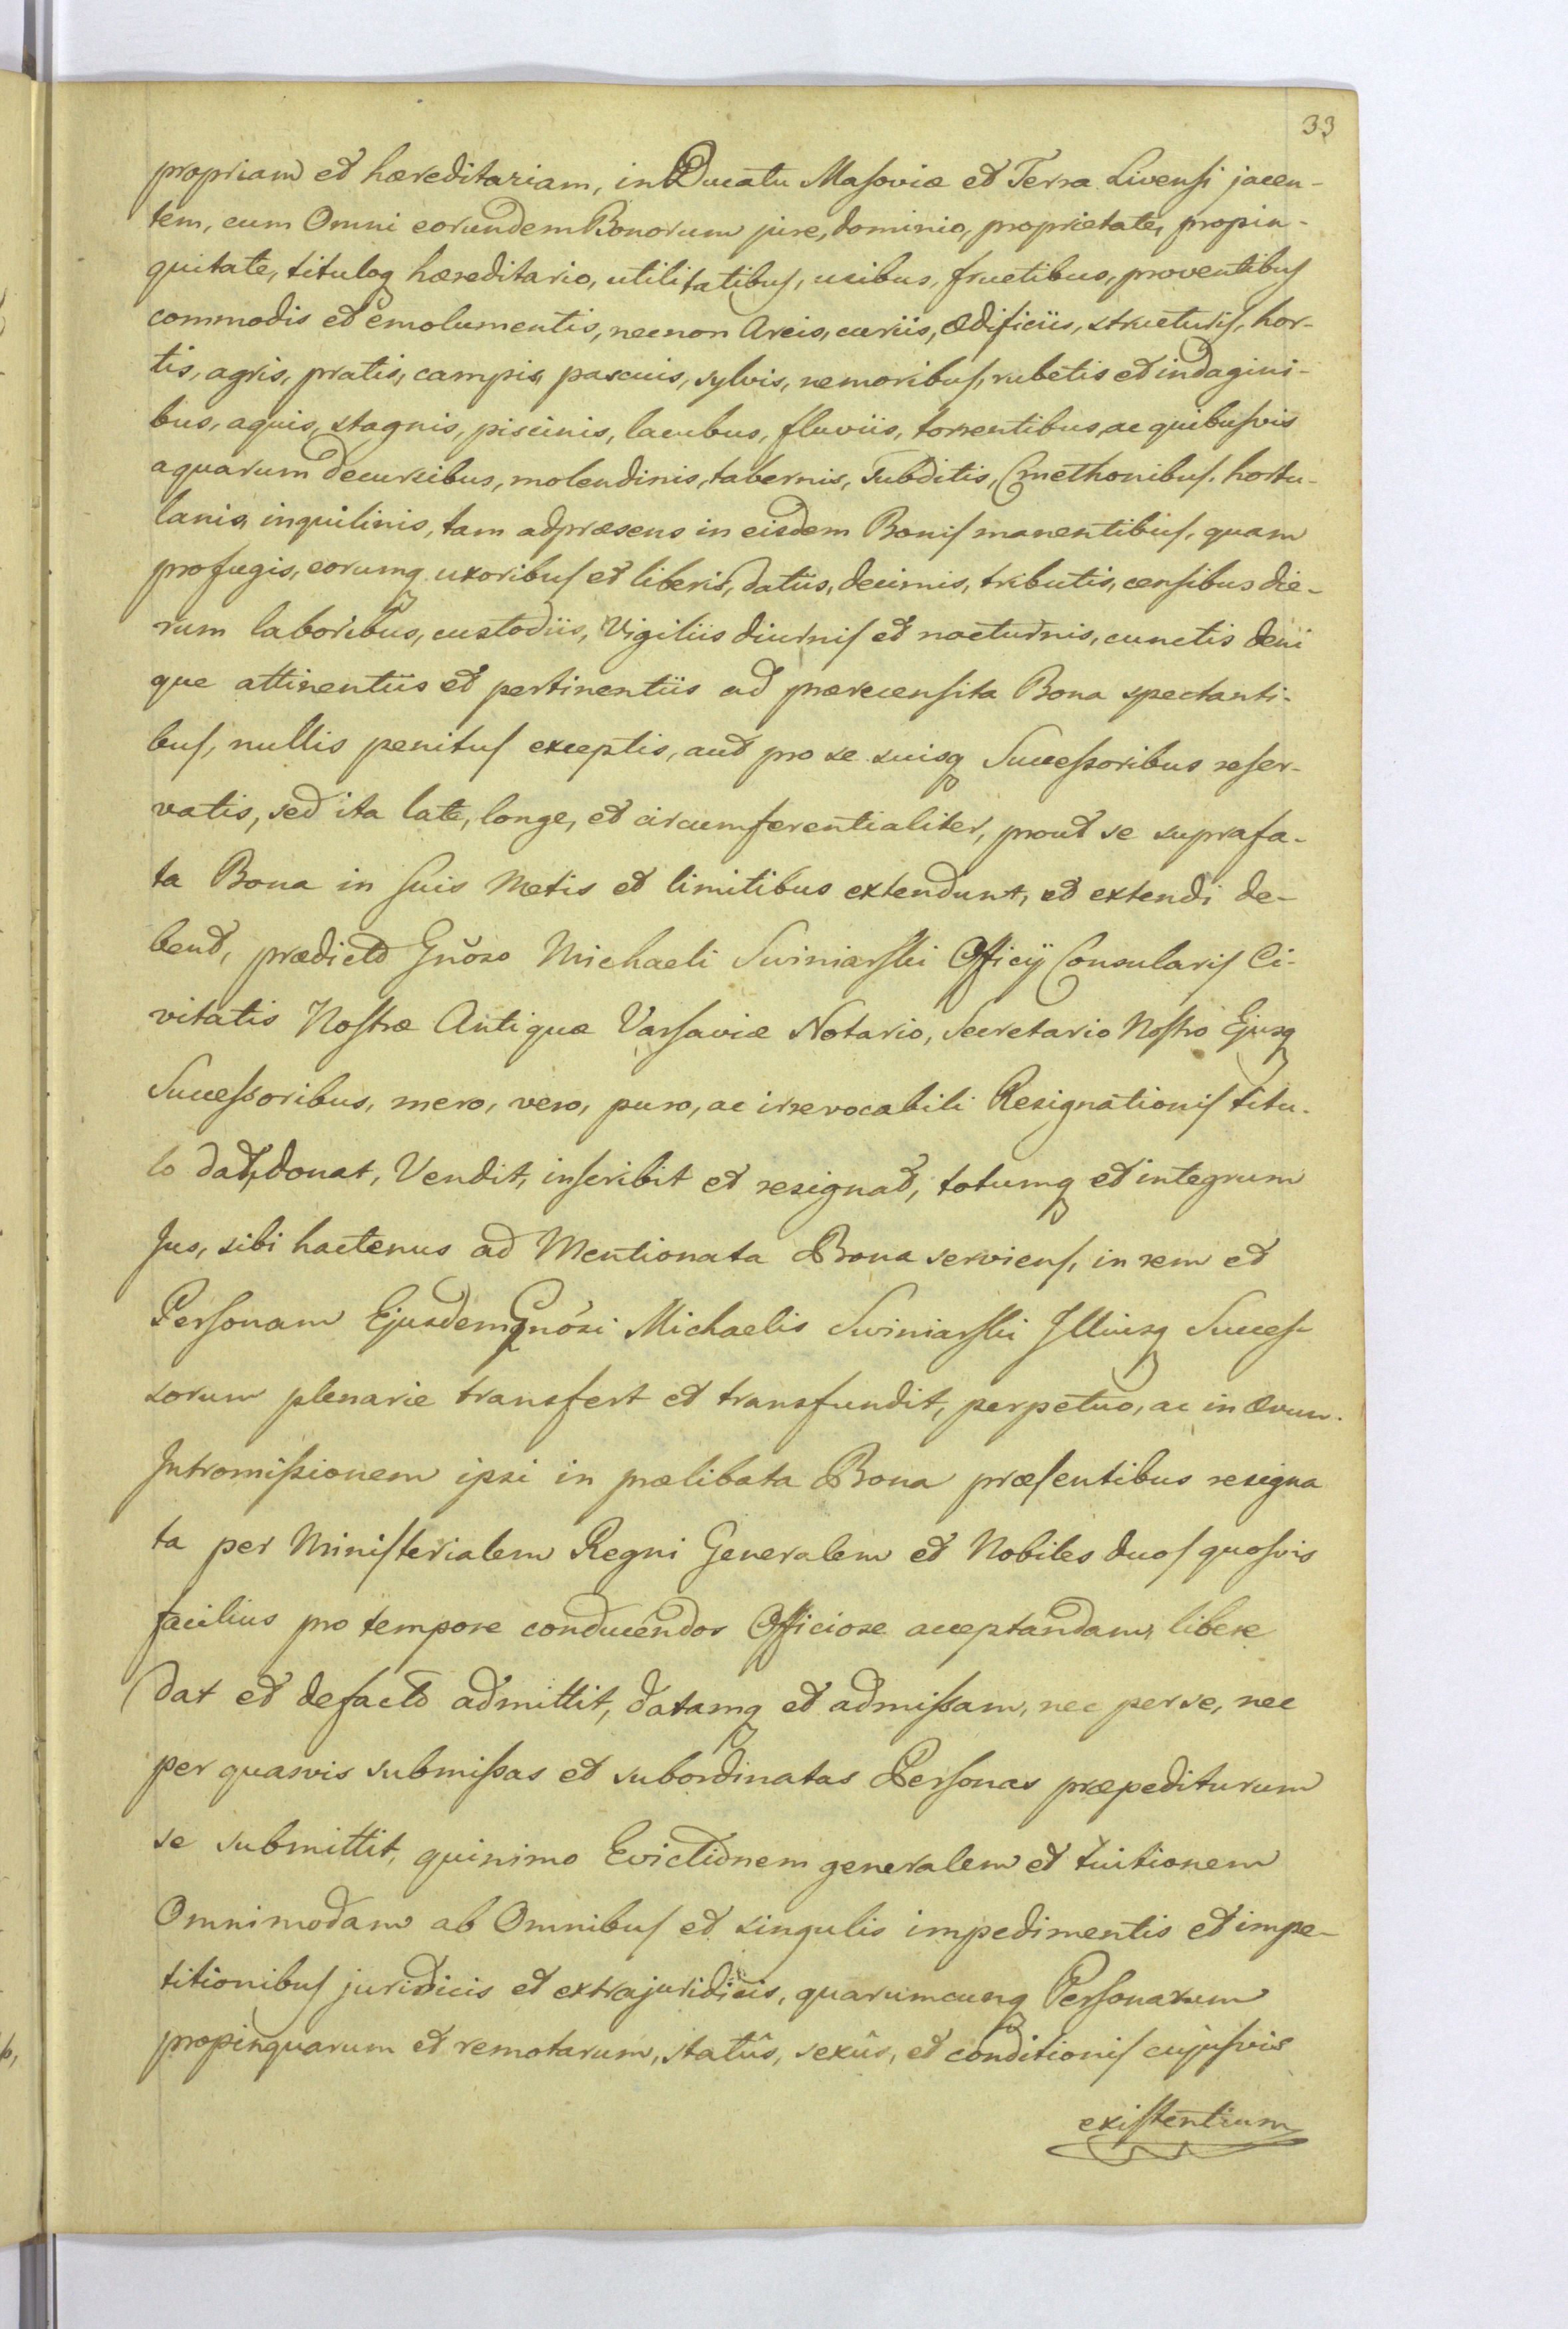 33
propriam et hæreditariam, in Ducatu Masoviæ et Terra Livensi jacen-
tem, cum Omni eorundem Bonorum jure, dominio, proprietate, propin-
quitate, tituloq hæreditario, utilitatibus, usibus, fructibus, proventibus
commodis et emolumentis, necnon Areis, curiis, Ædificiis, structuris, hor-
tis, agris, pratis, campis, pascuis, sylvis, nemoribus, rubetis et indagini-
bus, aquis, stagnis, piscinis, lacubus, fluviis, torrentibus, ac quibusvis
aquarum decursibus, molendinis, tabernis, Subditis, Cmethonibus, hortu-
lanis, inquilinis, tam adpræsens in eisdem Bonis manentibus, quam
profugis, eorumq uxoribus et liberis, datiis, decimis, tributis, censibus die-
rum laboribus, custodiis, Vigiliis diurnis et nocturnis, cunctis deni
que attinentiis et pertinentiis ad præcensita Bona spectanti-
bus, nullis penitus exceptis, aut pro se suisq Successoribus reser-
vatis, sed ita late, longe, et circumferentialiter, prout se suprafa-
ta Bona in suis Metis et limitibus extendunt, et extendi de-
bent, prædicto Gnŏso Michaeli Swiniarski Officij Consularis Ci-
vitatis Nostræ Antiquæ Varsaviæ Notario, Secretario Nostro Ejusq
Successoribus, mero, vero, puro, ac irrevocabili Resignationis titu-
lo dat, donat, Vendit, inscribit et resignat, totumq et integrum
Jus, sibi hactenus ad Mentionata Bona serviens, in rem et
Personam Ejusdem Gnŏsi Michaelis Swiniarski Illiusq Succes-
sorum plenarie transfert et transfundit, perpetuo, ac in ævum.
Intromissionem ipsi in prælibata Bona præsentibus resigna
ta per Ministerialem Regni Generalem et Nobiles duos quosvis
facilius pro tempore conducendos Officiose acceptandam, libere
dat et defacto admittit, datamq et admissam, nec per se, nec
per quasvis submissas et subordinatas Personas præpediturum
se submittit, quinimo Evictionem generalem et tuitionem
Omnimodam ab Omnibus et singulis impedimentis et impe-
titionibus juridicis et extrajuridicis, quarumcunq Personarum
propinquarum et remotarum, statûs, sexûs, et conditionis cujusvis
existentium